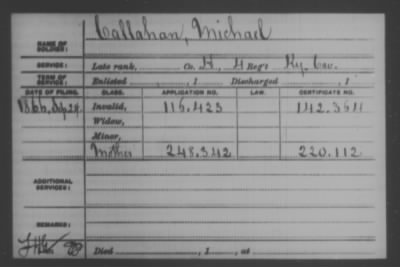 Callahan, Michael
NAME OF SOLDIER:
SERVICE: Late rank, Co. B, 4 Reg't Ky. Cav.
TERM OF SERVICE: Enlisted , 1 Discharged , 1
DATE OF FILING. CLASS. APPLICATION NO. LAW. CERTIFICATE NO.
1866, Sep 24 Invalid, 115.423 142.364
Widow,
Minor,
Mother 248.342 220.112
ADDITIONAL SERVICES:
REMARKS:
Died , 1 , at